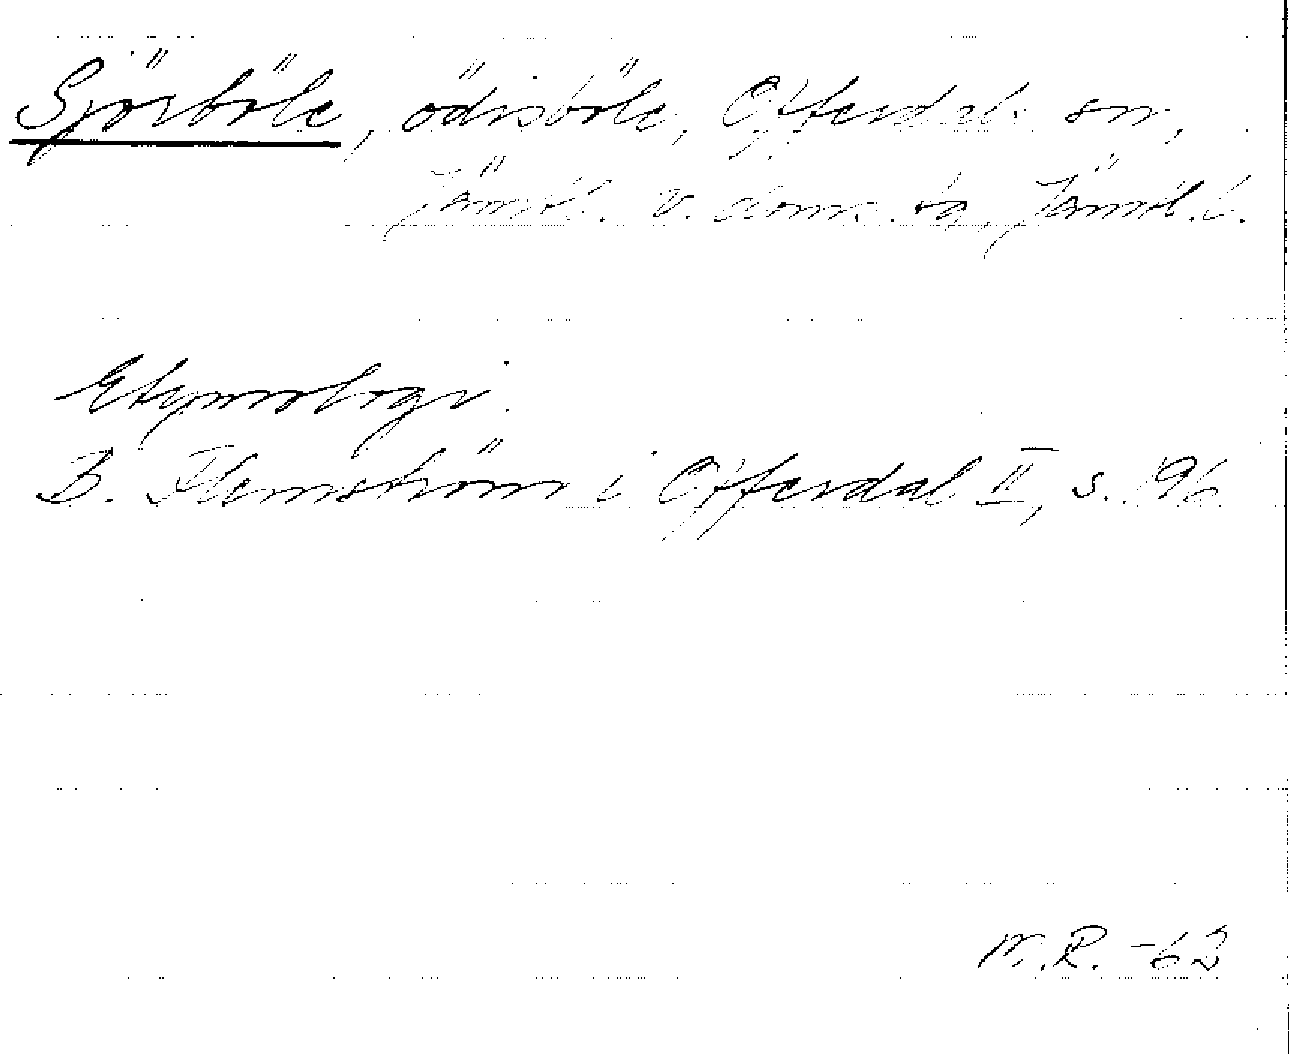 Sjörböle, ödesböle, Offerdals sn,
Jämtl. v. doms. tg, Jämtl. l.
Etymologi.
B. Flemström i Offerdal II, s. 196
M.R. -62